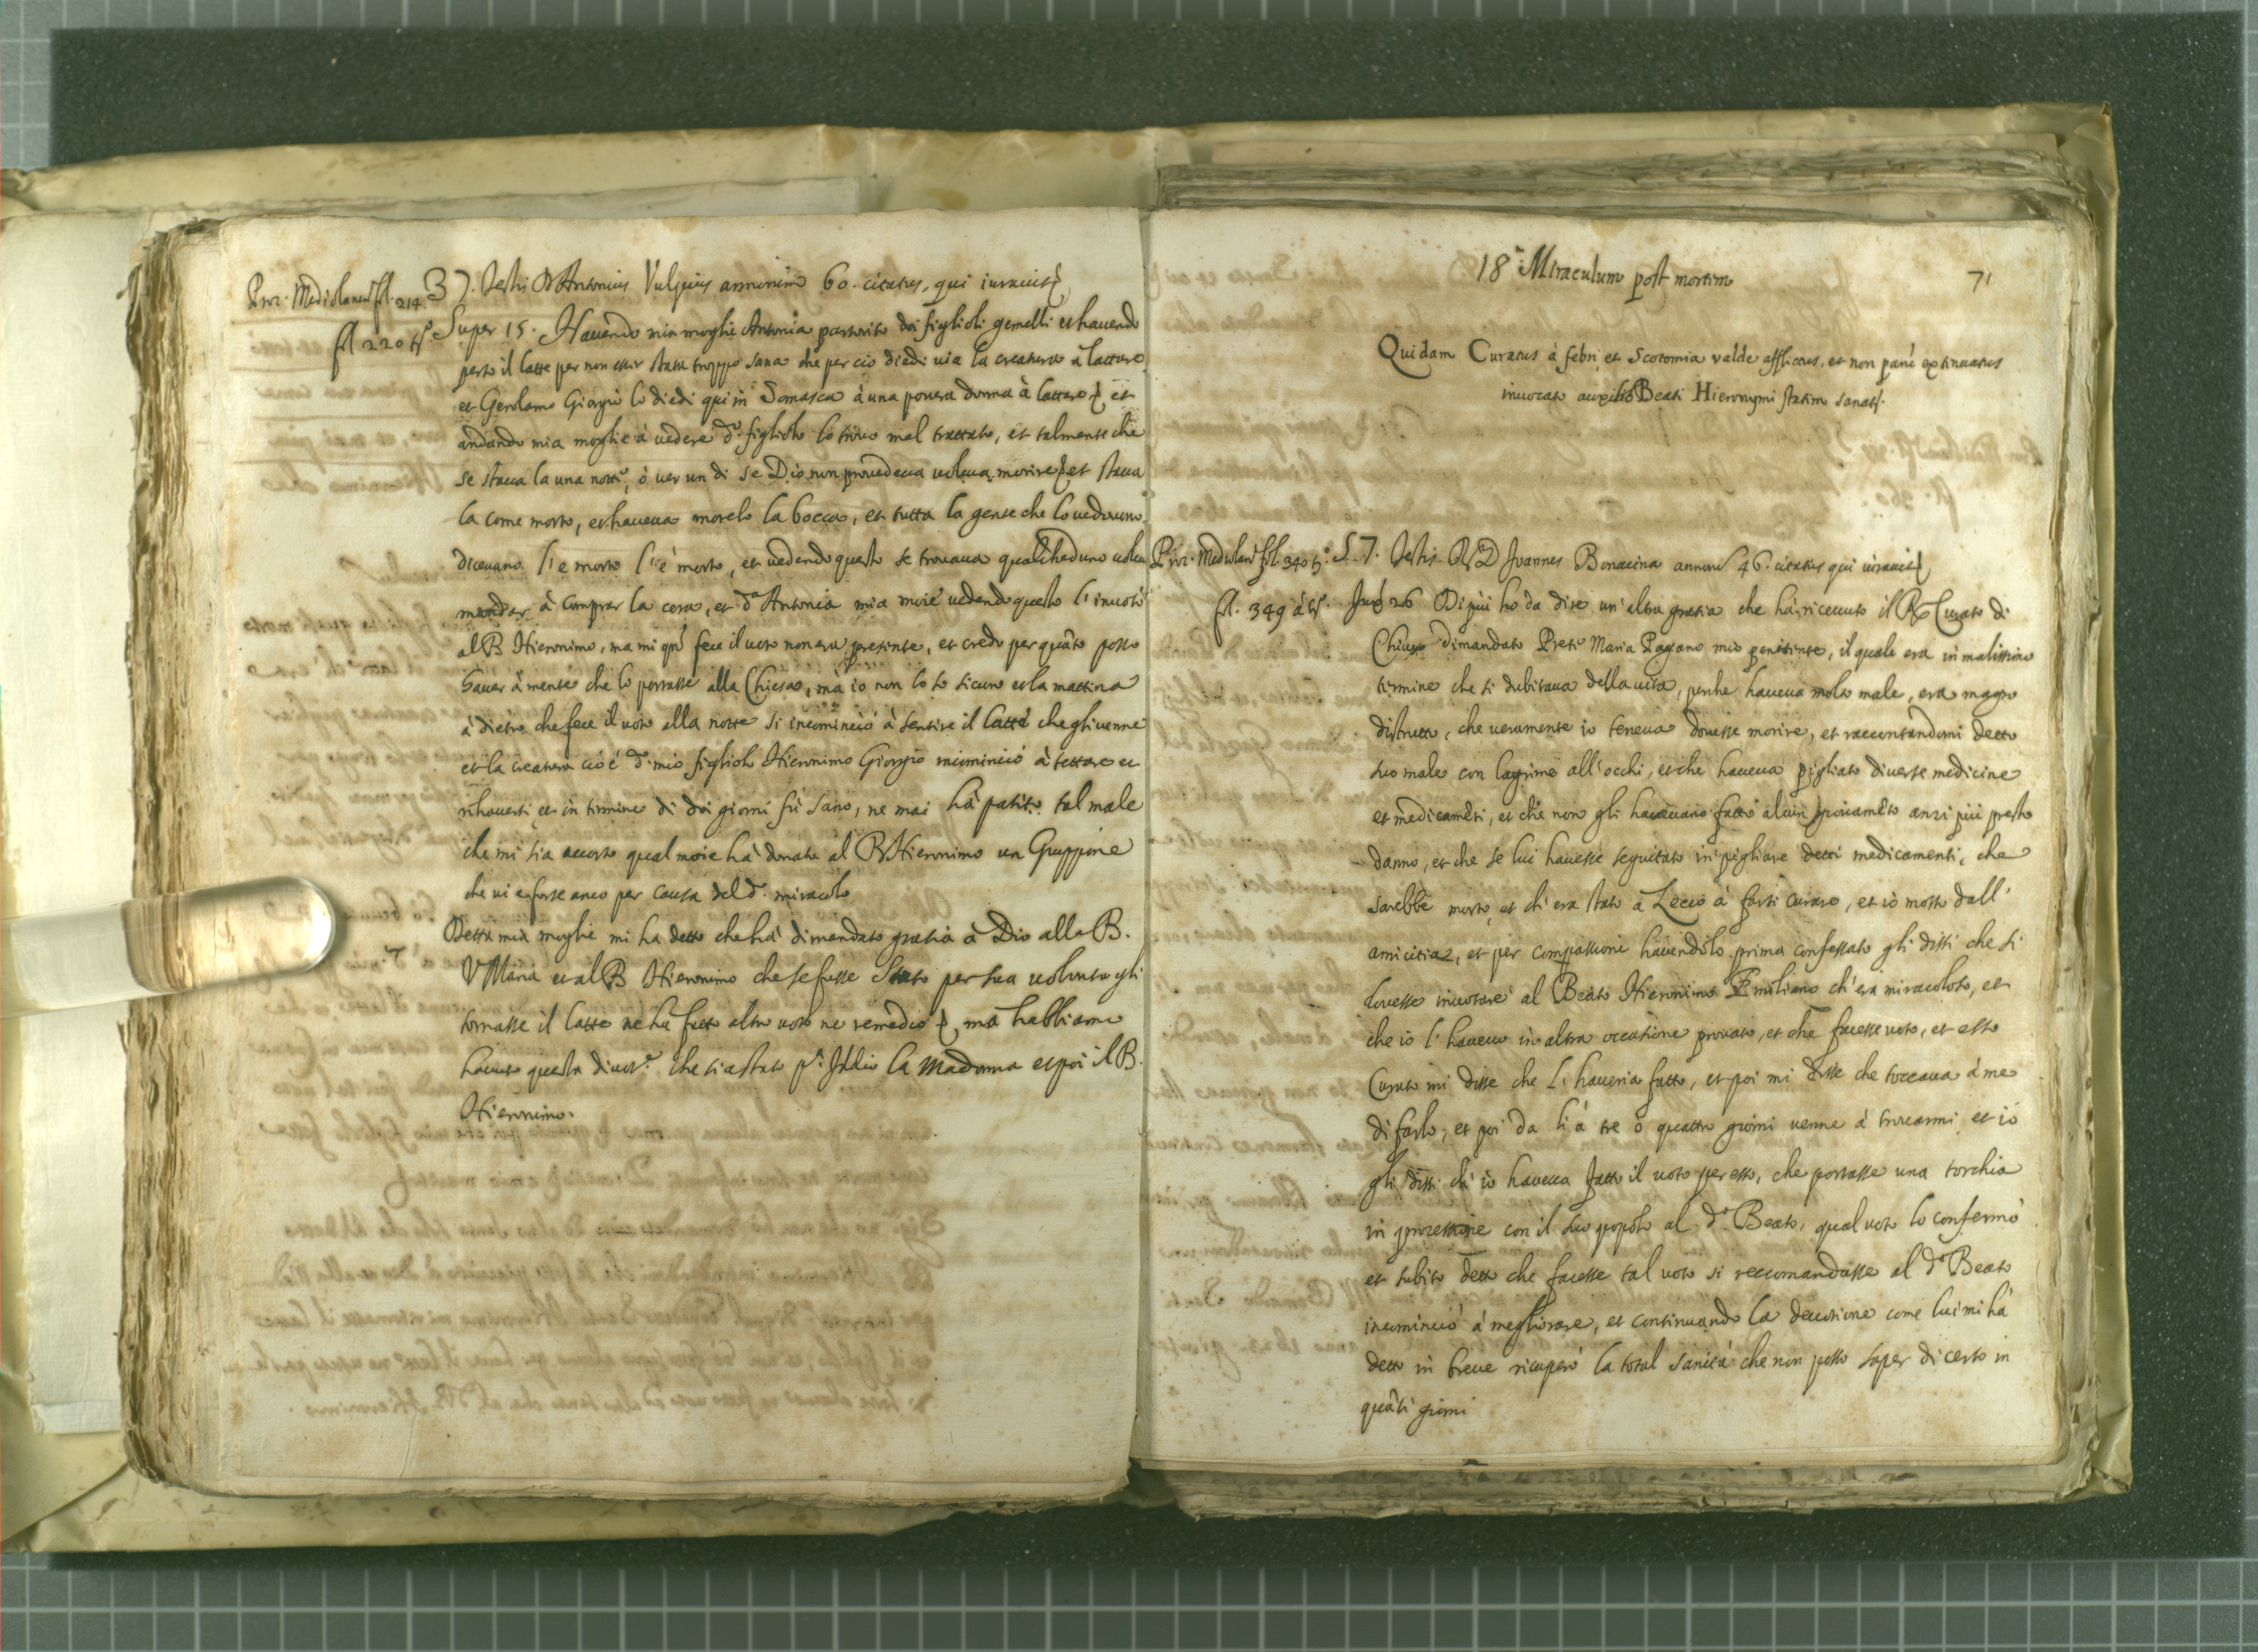 Proc. Mediolanen. fol. 214. 37. Testis D Antonius Vulpius annorum 60. citatus, qui iuravit
fol 220 ts.º Super 15. Havendo mia moglie Antonia partorito doi figlioli gemelli et havendo
perso il latte per non esser stata troppo sana che per ciò diedi via la creatura a lattare
et Gerolamo Giorgio lo diedi qui in Somasca à una povera donna à lattare, et
andando mia moglie à vedere d.º figliolo lo trovò mal trattato, et talmente che
se stava la una notte, ò ver un di se Dio non provedeva voleva morire et stava
la come morto, et haveva morelo la bocca, et tutta la gente che lo vedevano
dicevano l'è morto l'è morto, et vedendo questo se trovava qualcheduno voleva
mandar à comprar la cera, et d.ª Antonia mia moie vedendo questo l'invotò
al B Hieronimo, ma mi qñ fece il voto non era presente, et credo per quãto posso
haver à mente che lo portasse alla Chiesa, mà io non lo so sicuro et la mattina
à dietro che fece il voto alla notte si incominciò à sentire il latte che gli venne
et la creatura cioè d.º mio figliolo Hieronimo Giorgio incominciò à tettare et
rihaversi et in termine di doi giorni fù sano, ne mai hà patito tal male
che mi sia accorto qual moie hà donato al B Hieronimo un Gruppine
che vi è forse anco per causa del d.º miracolo
Detta mia moglie mi ha detto che hà dimandato gratia à Dio alla B.
V Maria et al B Hieronimo che se fusse stato per sua volonta gli
tornasse il latte ne ha fatto altro voto ne remedio, ma habbiamo
havuto questa divot.e che sia stato p.ª Iddio la Madonna et poi il B.
Hieronimo.
18.m Miraculum post mortem
71
Quidam Curatus à febri et Scotomia valde afflictus, et non parũ extenuatus
invocato auxilio Beati Hieronymi statim sanatʳ.
Proc. Mediolanẽ fol. 340 ts.º 57. Testis R D Joannes Bonacina annorũ 46. citatus qui iuravit
fol. 349 à ts.º Sup 26 Di più ho da dire un'altra gratia che hà ricevuto il R Curato di
Chiuso dimandato Preti Maria Pagano mio penitente, il quale era in malissimo
termine che si dubitava della vita, perche haveva molto male, era magro
distrutto, che veramente io teneva dovesse morire, et raccontandomi detto
suo male con lagrime all'occhi, et che haveva pigliato diverse medicine
et medicamẽti, et che non gli havevano fatto alcun giovamẽto anzi più presto
danno, et che se lui havesse seguitato in pigliare detti medicamenti, che
sarebbe morto, et ch'era stato à Lecco à farsi curare, et io mosso dall'
amicitia, et per compassione havendolo prima confessato gli dissi che si
dovesse invotare al Beato Hieronimo Emiliano ch'era miracoloso, et
che io l'havevo in altra occasione provato, et che facesse voto, et esso
Curato mi disse che l'haveria fatto, et poi mi disse che toccava à me
di farlo, et poi da lì à tre ò quattro giorni venne à trovarmi et io
gli dissi ch'io haveva fatto il voto per esso, che portasse una torchia
in processione con il suo popolo al d.º Beato, qual voto lo confermò
et subito detto che facesse tal voto si reccomandasse al d.º Beato
incominciò à megliorare, et continuando la devotione come lui mi hà
detto in breve ricuperò la total sanità che non posso saper di certo in
quãti giorni